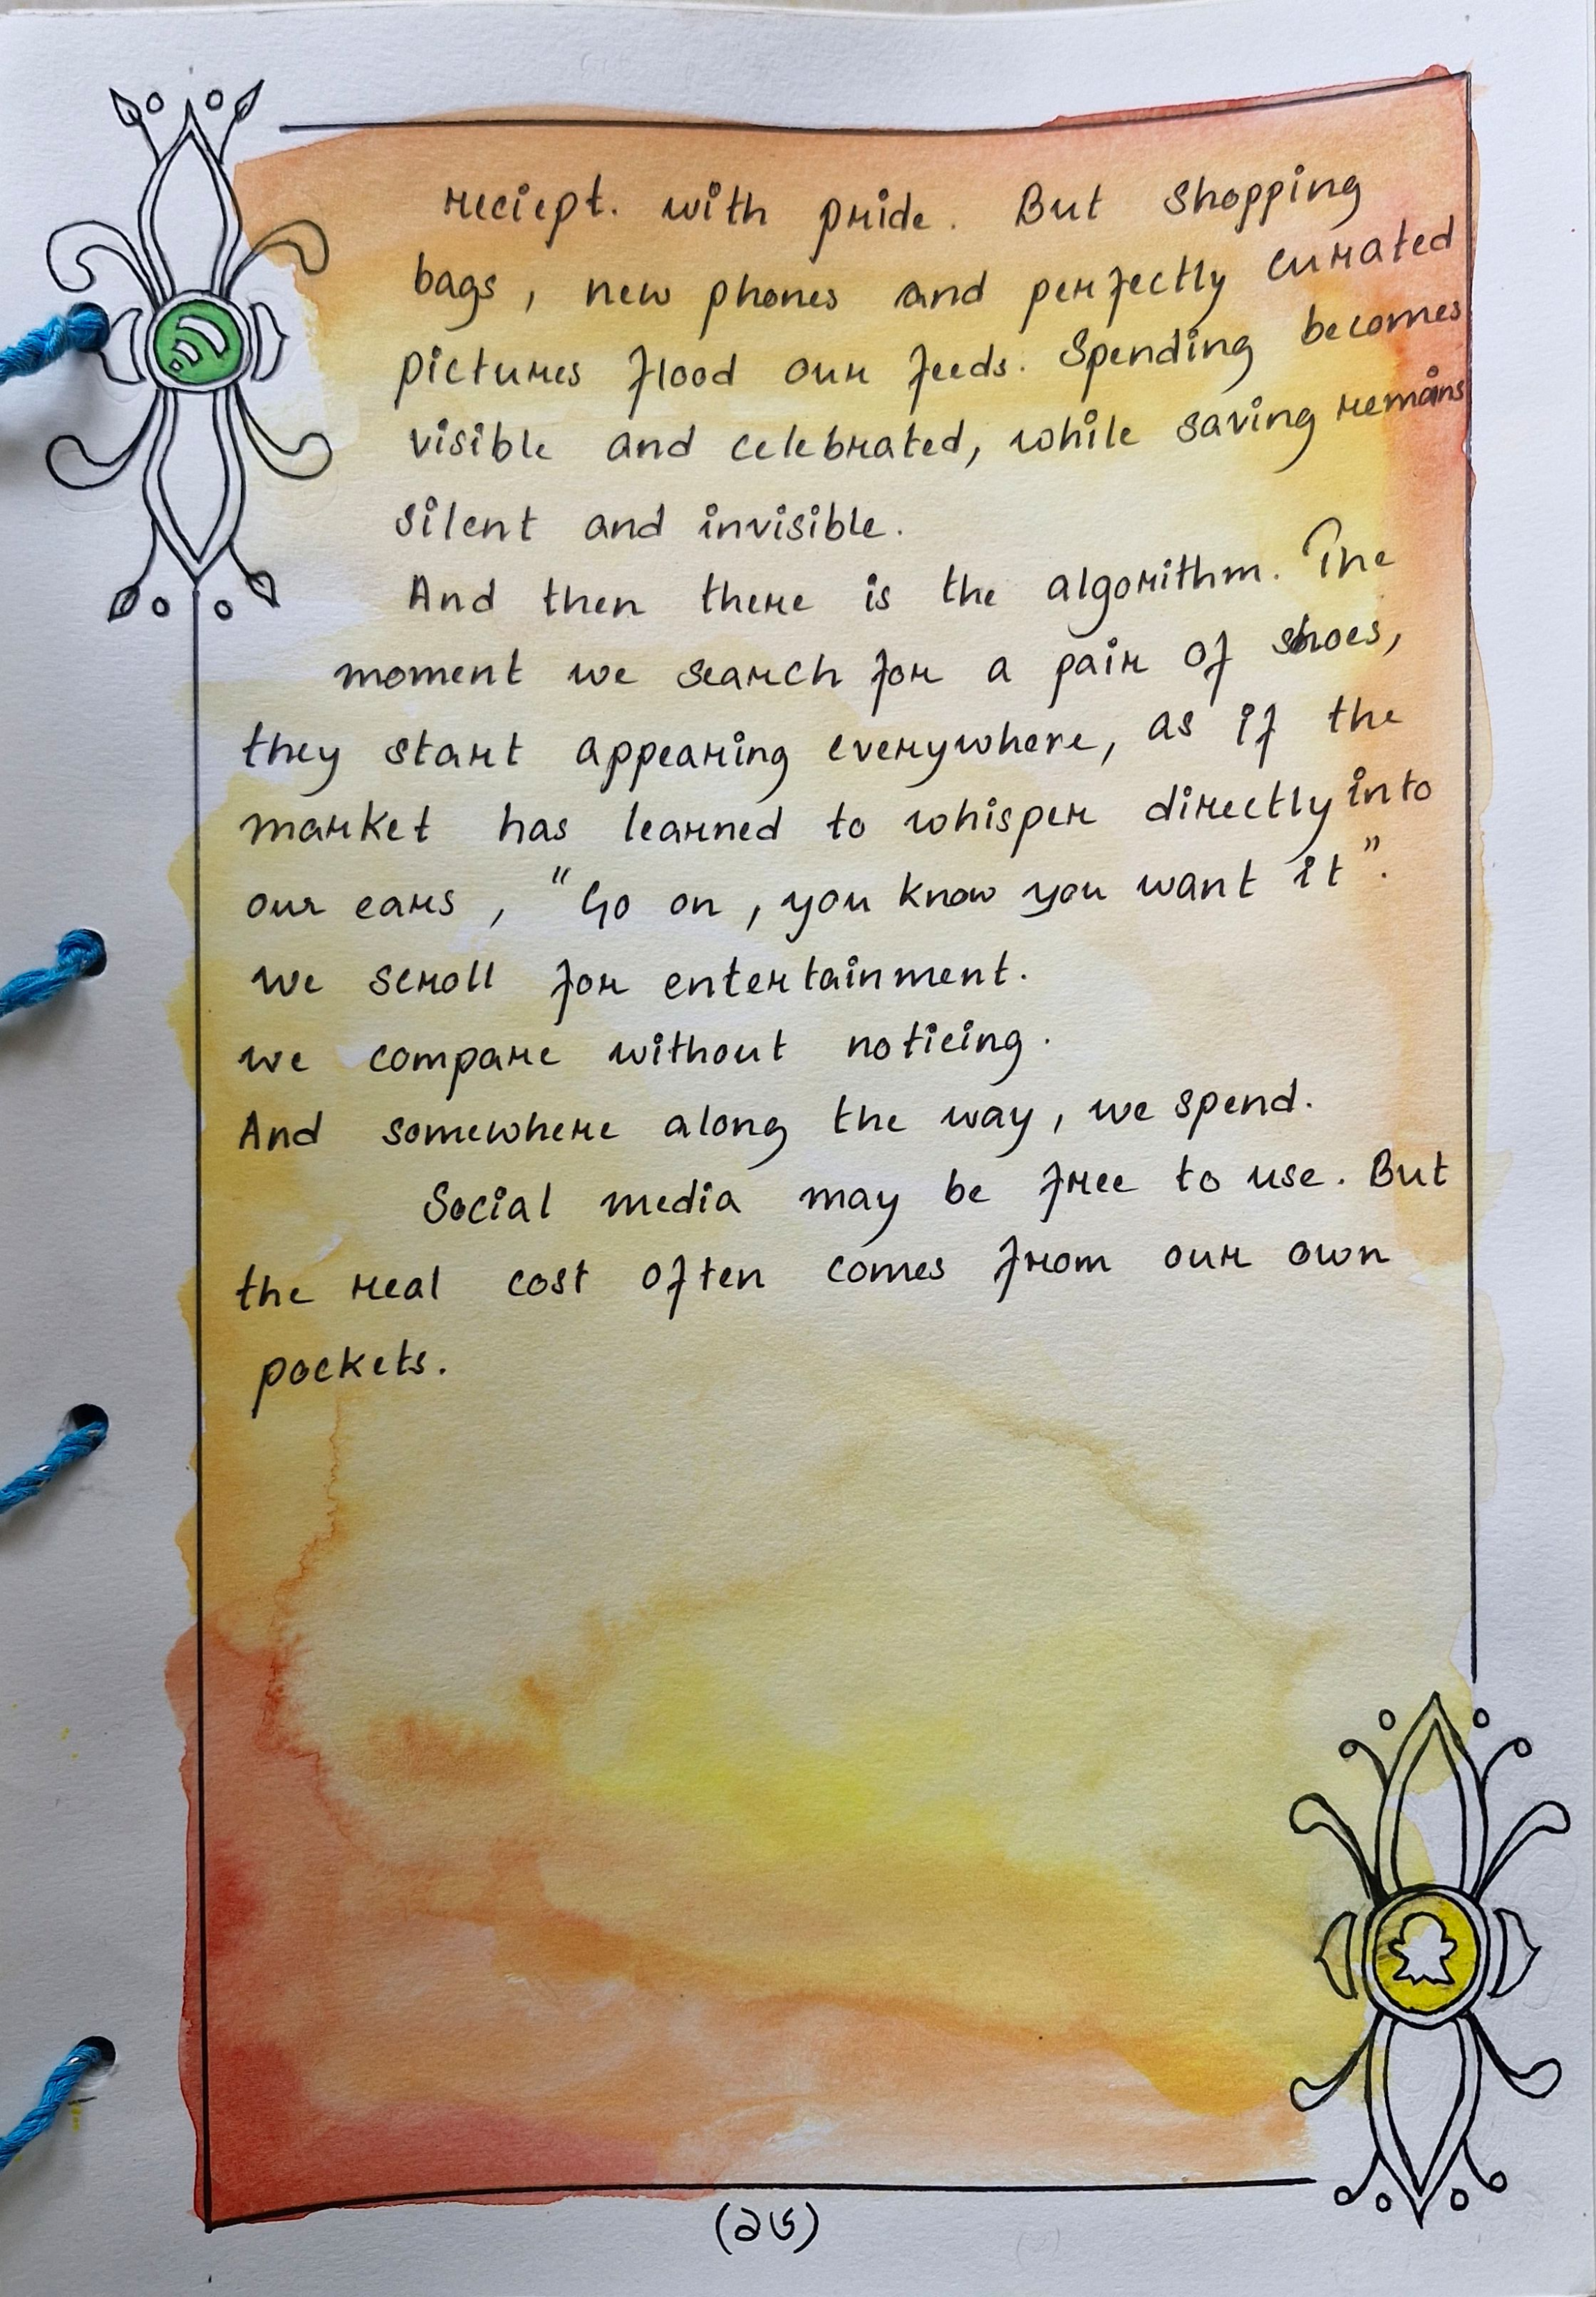 reciept. with pride. But shopping
bags, new phones and perfectly curated
pictures flood our feeds. Spending becomes
visible and celebrated, while saving remains
silent and invisible.
And then there is the algorithm. The
moment we search for a pair of shoes,
they start appearing everywhere, as if the
market has learned to whisper directly into
our ears, "Go on, you know you want it".
we scroll for entertainment.
we compare without noticing.
And somewhere along the way, we spend.
Social media may be free to use. But
the real cost often comes from our own
pockets.